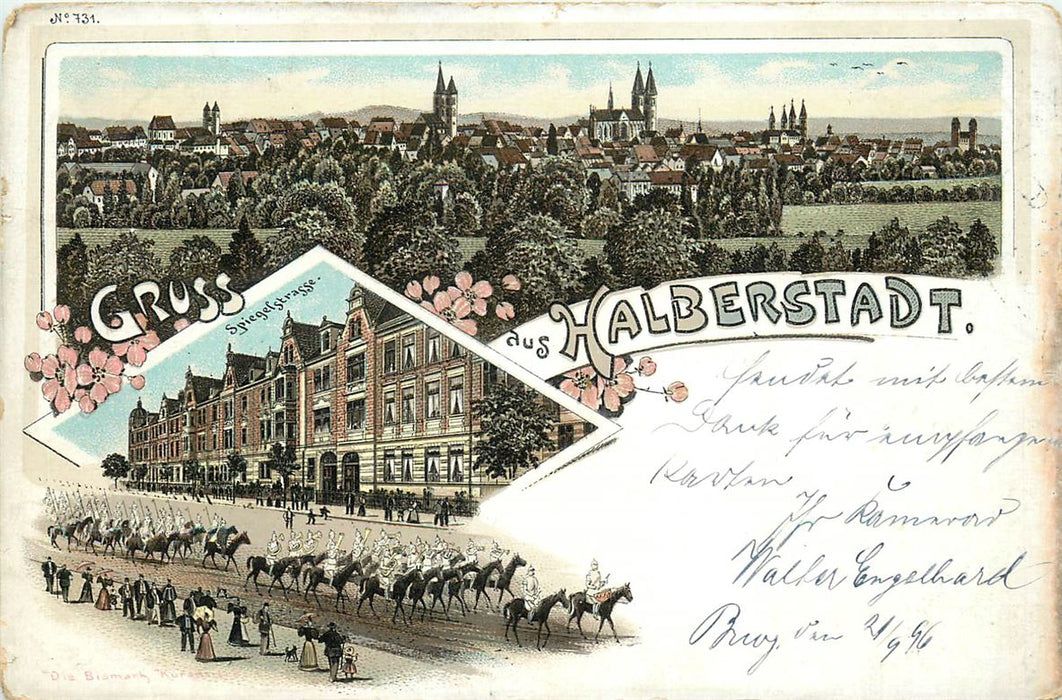 No. 731.
GRUSS
aus HALBERSTADT.
Spiegelstrasse.
sendet mit bestem
Dank für empfangene
Karten
Ihr Kamerad
Walter Engelhard
den 21/9 96
Die Bismark